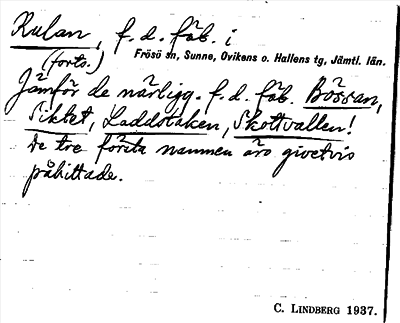 Kulan, f. d. fäb. i
(forts.) Frösö sn, Sunne, Ovikens o. Hallens tg, Jämtl. län.
Jämför de närligg. f. d. fäb. Bössan,
Siktet, Laddstaken, Skottvallen!
De tre första namnen äro givetvis
påhittade.
C. LINDBERG 1937.